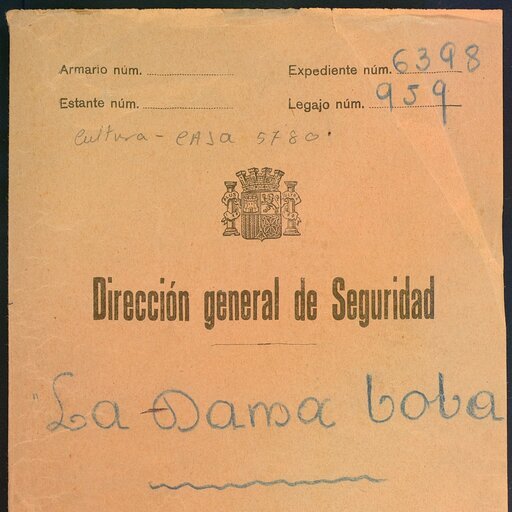 Armario núm.
Expediente núm. 6398
Estante núm.
Legajo núm. 959
Cultura - CAJA 5780.
Dirección general de Seguridad
"La Dama boba